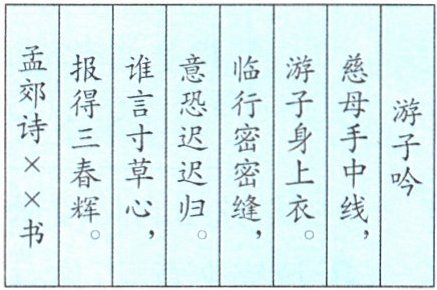 游子吟
慈母手中线，
游子身上衣。
临行密密缝，
意恐迟迟归。
谁言寸草心，
报得三春辉。
孟郊诗××书